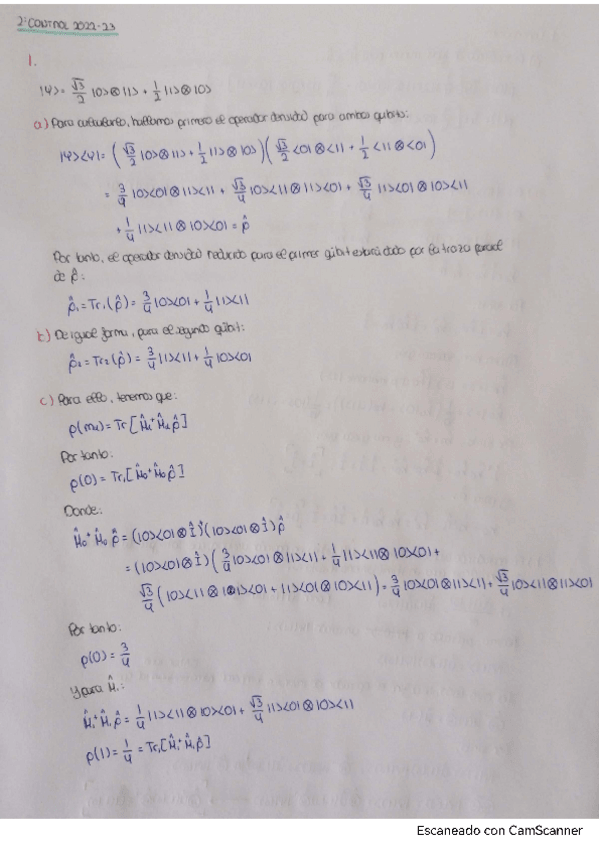 2º CONTROL 2022-23
1.
|Ψ> = √3/2 |0>⊗|1> + 1/2 |1>⊗|0>
a) Para calcularlo, hallamos primero el operador densidad para ambos qubits:
|Ψ><Ψ| = (√3/2 |0>⊗|1> + 1/2 |1>⊗|0>)(√3/2 <0|⊗<1| + 1/2 <1|⊗<0|)
= 3/4 |0><0|⊗|1><1| + √3/4 |0><1|⊗|1><0| + √3/4 |1><0|⊗|0><1|
+ 1/4 |1><1|⊗|0><0| = ρ̂
Por tanto, el operador densidad reducido para el primer qubit estará dado por la traza parcial
de ρ̂:
ρ̂₁ = Tr₁(ρ̂) = 3/4 |0><0| + 1/4 |1><1|
b) De igual forma, para el segundo qubit:
ρ̂₂ = Tr₂(ρ̂) = 3/4 |1><1| + 1/4 |0><0|
c) Para ello, tenemos que:
p(m) = Tr[M̂⁺M̂ρ̂]
Por tanto:
p(0) = Tr₁[M̂₀⁺M̂₀ρ̂]
Donde:
M̂₀⁺M̂₀ρ̂ = (|0><0|⊗Î)⁺(|0><0|⊗Î)ρ̂
= (|0><0|⊗Î)(3/4 |0><0|⊗|1><1| + 1/4 |1><1|⊗|0><0| +
√3/4 (|0><1|⊗|1><0| + |1><0|⊗|0><1|) = 3/4 |0><0|⊗|1><1| + √3/4 |0><1|⊗|1><0|
Por tanto:
p(0) = 3/4
Y para M̂₁:
M̂₁⁺M̂₁ρ̂ = 1/4 |1><1|⊗|0><0| + √3/4 |1><0|⊗|0><1|
p(1) = 1/4 = Tr₁[M̂₁⁺M̂₁ρ̂]
Escaneado con CamScanner